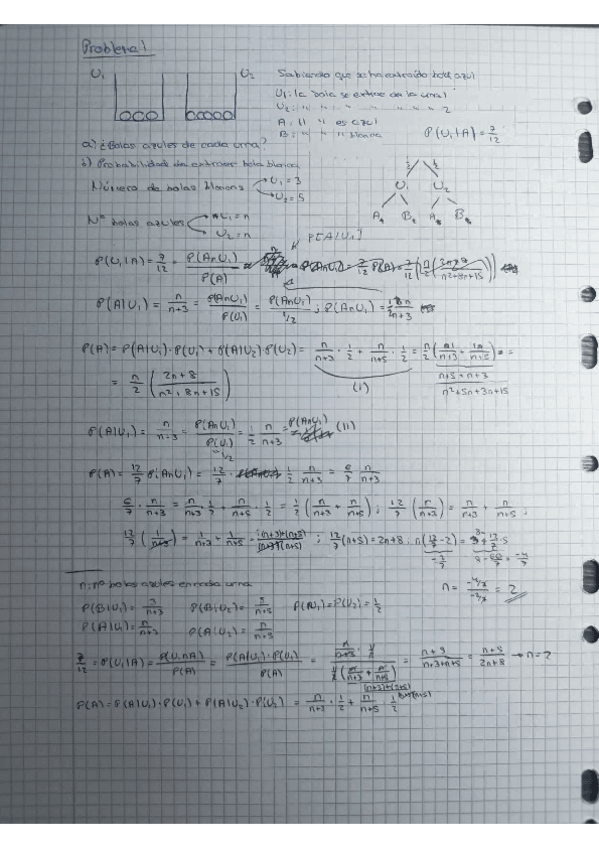 Problema 1
U₁ U₂ Sabiendo que se ha extraído bola azul
U₁: la bola se extrae de la urna 1
U₂: " " " " " " " 2
A: " " es azul
B: " " " blanca P(U₁|A) = 7/12
a) ¿Bolas azules de cada urna?
b) Probabilidad de extraer bola blanca
Número de bolas blancas U₁ = 3
U₂ = 5
U₁ U₂
A B A B
Nº bolas azules U₁ = n
U₂ = n
P[A|U₁]
P(U₁|A) = 7/12 = P(A∩U₁)/P(A)
P(A|U₁) = n/(n+3) = P(A∩U₁)/P(U₁) = P(A∩U₁)/(1/2) ; P(A∩U₁) =
P(A) = P(A|U₁)·P(U₁) + P(A|U₂)·P(U₂) = n/(n+3) · 1/2 + n/(n+5) · 1/2 = n/2 (1/(n+3) + 1/(n+5)) =
= n/2 ((2n+8)/(n²+8n+15)) (I) (n+5+n+3)/(n²+5n+3n+15)
P(A|U₁) = n/(n+3) = P(A∩U₁)/P(U₁) = 1/2 n/(n+3) = P(A∩U₁) (II)
= 1/2
P(A) = 12/7 P(A∩U₁) = 12/7 · 1/2 n/(n+3) = 6/7 n/(n+3)
6/7 · n/(n+3) = n/(n+3) 1/2 + n/(n+5) · 1/2 = 1/2 (n/(n+3) + n/(n+5)) ; 12/7 (n/(n+3)) = n/(n+3) + n/(n+5) ;
12/7 (1/(n+3)) = 1/(n+3) + 1/(n+5) · ((n+3)+(n+5))/((n+3)(n+5)) ; 12/7 (n+5) = 2n+8 ; n(12/7 - 2) = 8 - 12/7·5
-2/7 8 - 60/7 = -4/7
n = (-4/7)/(-2/7) = 2
n: nº bolas azules en cada urna
P(B|U₁) = 3/(n+3) P(B|U₂) = 5/(n+5) P(U₁) = P(U₂) = 1/2
P(A|U₁) = n/(n+3) P(A|U₂) = n/(n+5)
7/12 = P(U₁|A) = P(U₁∩A)/P(A) = P(A|U₁)·P(U₁)/P(A) = (n/(n+3) · 1/2)/(1/2 (n/(n+3) + n/(n+5))) = (n+5)/(n+3+n+5) = (n+5)/(2n+8) → n=2
P(A) = P(A|U₁)·P(U₁) + P(A|U₂)·P(U₂) = n/(n+3) · 1/2 + n/(n+5) · 1/2